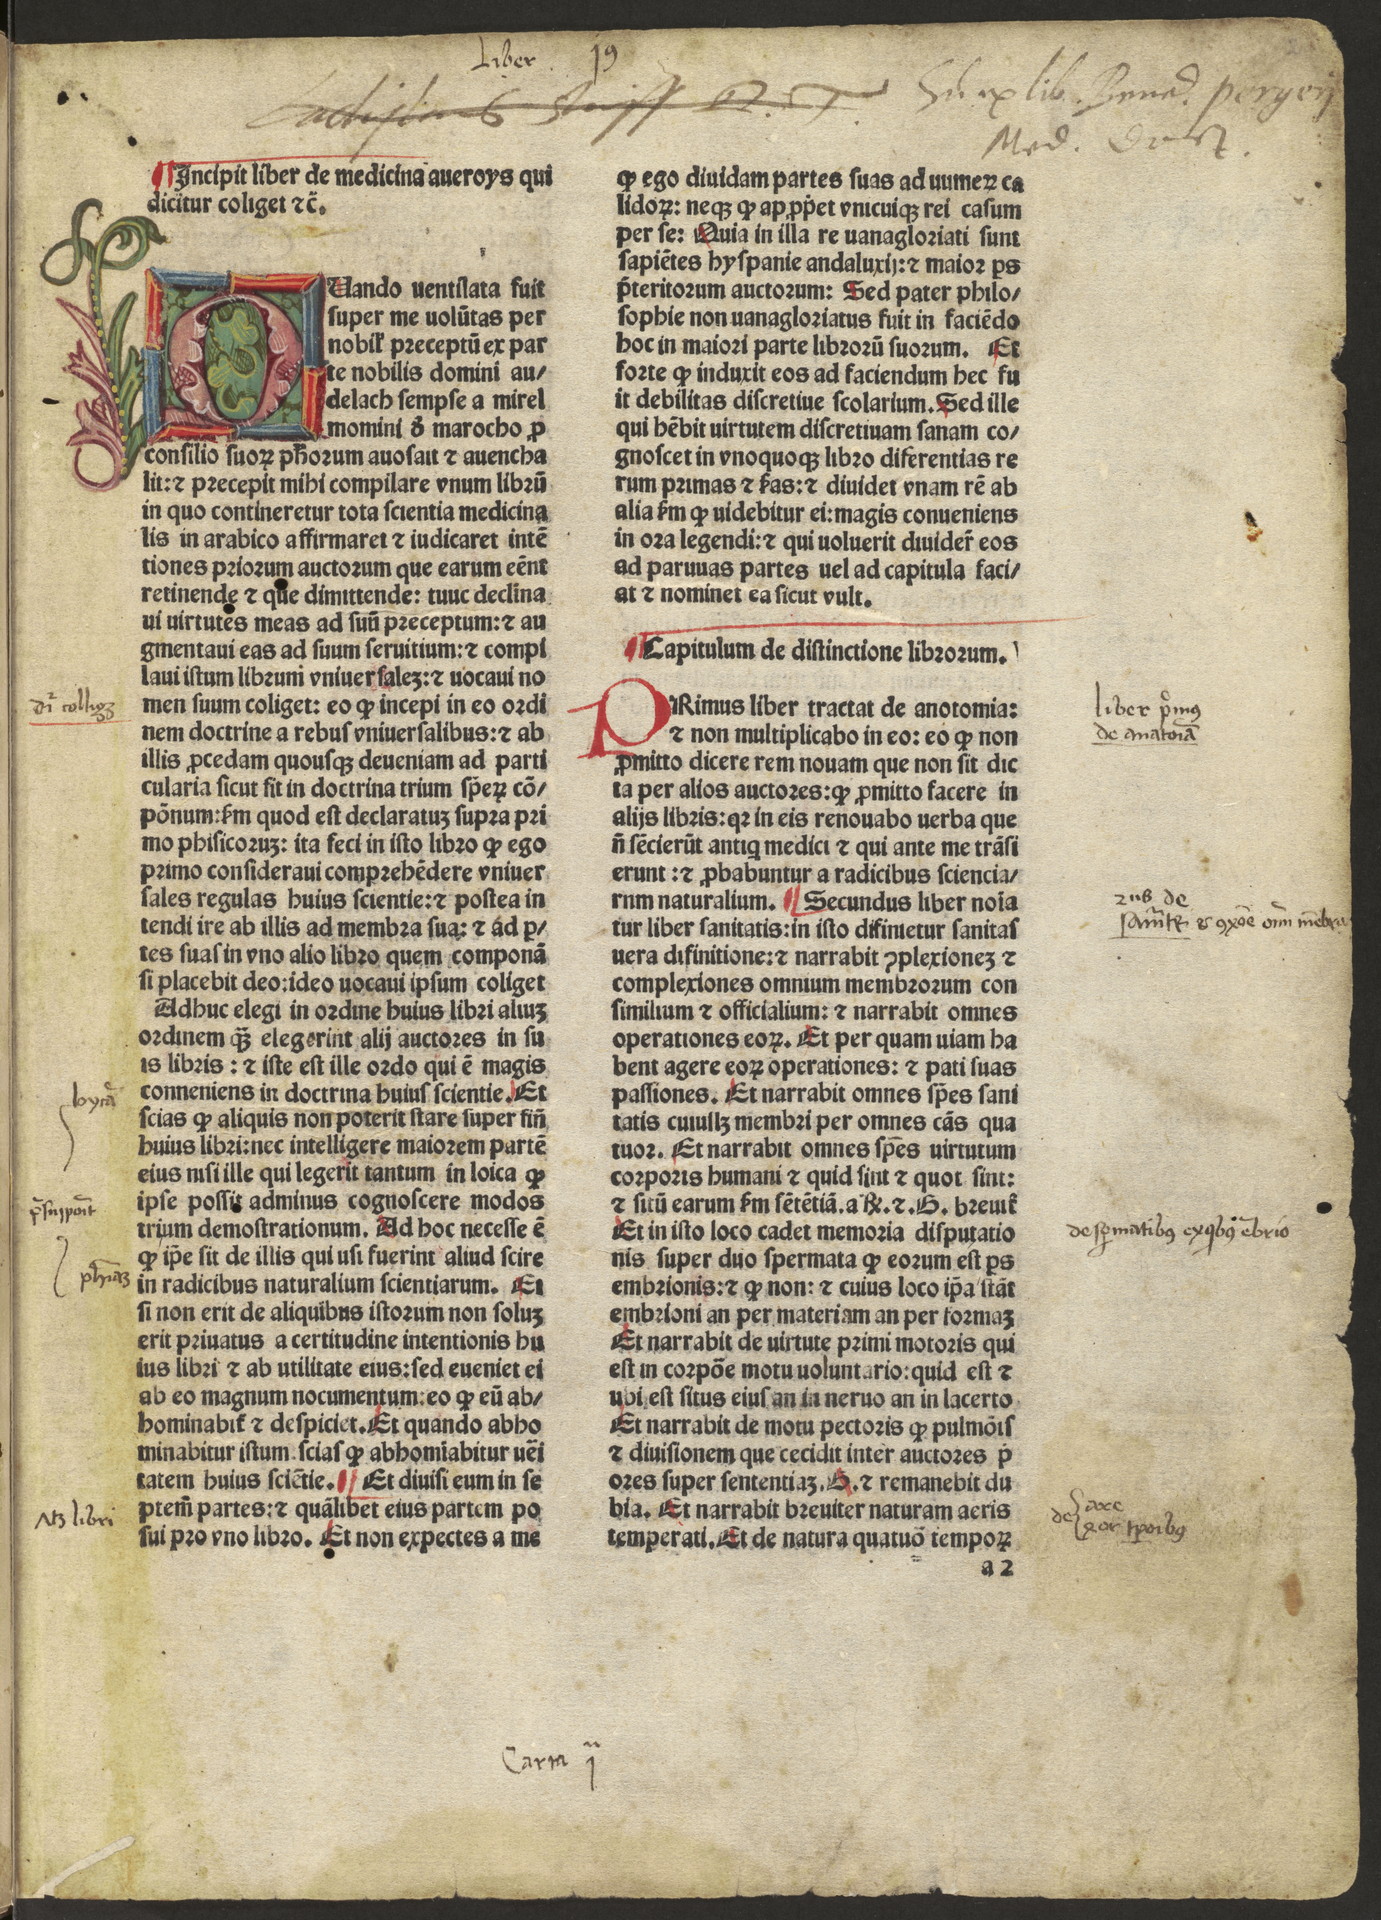 Liber 19
Sũ ex lib. Bened. pergerij
Med. Doct.
¶Incipit liber de medicina aueroys qui
dicitur coliget ⁊c̃.
QUando uentilata fuit
super me uolũtas per
nobil’ preceptũ ex par
te nobilis domini au/
delach sempse a mirel
momini ð marocho ꝓ
consilio suoꝝ ph̃orum auosait ⁊ auencha
lit:⁊ precepit mihi compilare vnum librũ
in quo contineretur tota scientia medicina
lis in arabico affirmaret ⁊ iudicaret intẽ
tiones priorum auctorum que earum eẽnt
retinende ⁊ que dimittende: tuuc declina
ui uirtutes meas ad suũ preceptum:⁊ au
gmentaui eas ad suum seruitium:⁊ compi
laui istum librum vniuersaleʒ:⁊ uocaui no
men suum coliget: eo ꝙ incepi in eo ordi
nem doctrine a rebus vniuersalibus:⁊ ab
illis ꝓcedam quousqʒ deueniam ad parti
cularia sicut fit in doctrina trium sp̃eꝝ cõ/
põnum:ẜm quod est declaratuʒ supra pri
mo phisicoruʒ: ita feci in isto libro ꝙ ego
primo consideraui comprehẽdere vniuer
sales regulas huius scientie:⁊ postea in
tendi ire ab illis ad membra sua: ⁊ ad ꝑ/
tes suas in vno alio libro quem componã
si placebit deo:ideo uocaui ipsum coliget
Adhuc elegi in ordine huius libri aliuʒ
ordinem qʒ̃ elegerint alij auctores in su
is libris : ⁊ iste est ille ordo qui ẽ magis
conneniens in doctrina huius scientie. Et
scias ꝙ aliquis non poterit stare super fiñ
huius libri:nec intelligere maiorem partẽ
eius nisi ille qui legerit tantum in loica ꝙ
ipse possit adminus cognoscere modos
trium demostrationum. Ad hoc necesse ẽ
ꝙ ip̃e sit de illis qui usi fuerint aliud scire
in radicibus naturalium scientiarum. Et
si non erit de aliquibus istorum non soluʒ
erit priuatus a certitudine intentionis hu
ius libri ⁊ ab utilitate eius:sed eueniet ei
ab eo magnum nocumentum:eo ꝙ eũ ab/
hominabit̃ ⁊ despiciet. Et quando abho
minabitur istum scias ꝙ abhomĩabitur uẽi
tatem huius sciẽtie. ¶ Et diuisi eum in se
ptem̃ partes:⁊ quãlibet eius partem po
sui pro vno libro. Et non expectes a me
ꝙ ego diuidam partes suas ad uumeꝝ ca
lidoꝝ: neqʒ ꝙ apꝓp̃et vnicuiqʒ rei casum
per se: Quia in illa re uanagloriati sunt
sapiẽtes hyspanie andaluxij:⁊ maior ps
p̃teritorum auctorum: Sed pater philo/
sophie non uanagloriatus fuit in faciẽdo
hoc in maiori parte librorũ suorum. Et
forte ꝙ induxit eos ad faciendum hec fu
it debilitas discretiue scolarium. Sed ille
qui hẽbit uirtutem discretiuam sanam co/
gnoscet in vnoquoqʒ libro diferentias re
rum primas ⁊ ẜas:⁊ diuidet vnam rẽ ab
alia ẜm ꝙ uidebitur ei:magis conueniens
in ora legendi:⁊ qui uoluerit diuider̃ eos
ad paruuas partes uel ad capitula faci/
at ⁊ nominet ea sicut vult.
¶Capitulum de distinctione librorum.
PRimus liber tractat de anotomia:
⁊ non multiplicabo in eo: eo ꝙ non
ꝓmitto dicere rem nouam que non sit dic
ta per alios auctores:ꝙ ꝓmitto facere in
alijs libris:qꝛ in eis renouabo uerba que
ñ sẽcierũt antiq̇ medici ⁊ qui ante me trãsi
erunt :⁊ ꝓbabuntur a radicibus sciencia/
rnm naturalium. ¶ Secundus liber noĩa
tur liber sanitatis:in isto difinietur sanitas
uera difinitione:⁊ narrabit ꝯplexioneʒ ⁊
complexiones omnium membrorum con
similium ⁊ officialium: ⁊ narrabit omnes
operationes eoꝝ. Et per quam uiam ha
bent agere eoꝝ operationes: ⁊ pati suas
passiones. Et narrabit omnes sp̃es sani
tatis cuiuslʒ membri per omnes cãs qua
tuor. Et narrabit omnes sp̃es uirtutum
corporis humani ⁊ quid sint ⁊ quot sint:
⁊ sitũ earum ẜm sẽtẽtiã. a ꝶ. ⁊. G. breuit̃
Et in isto loco cadet memoria disputatio
nis super duo spermata ꝙ eorum est ps
embrionis:⁊ ꝙ non: ⁊ cuius loco ip̃a stãt
embrioni an per materiam an per formaʒ
Et narrabit de uirtute primi motoris qui
est in corpõe motu uoluntario:quid est ⁊
ubi est situs eius an in neruo an in lacerto
Et narrabit de motu pectoris ꝙ pulmõis
⁊ diuisionem que cecidit inter auctores p̃
ores super sententiaʒ. G. ⁊ remanebit du
bia. Et narrabit breuiter naturam aeris
temperati. Et de natura quatuõ tempoꝝ
a 2
liber p̃mꝰ
de anatoiã
2us de
de sp̃matibꝰ ex qͥbꝰ ẽbrio
libri
Carta ij